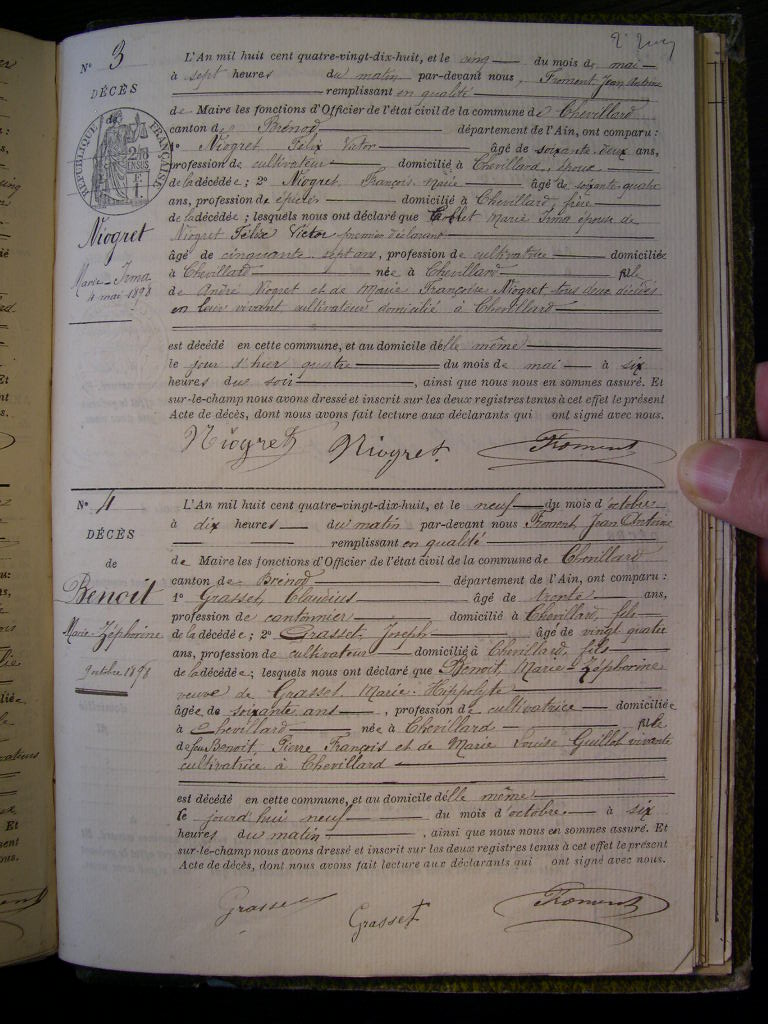 N° 3
DÉCÈS
de
RÉPUBLIQUE FRANÇAISE
Niogret
Marie-Irma
4 mai 1898
L'An mil huit cent quatre-vingt-dix-huit, et le cinq du mois de mai
à sept heures du matin par-devant nous, Froment Jean Antoine
remplissant en qualité
de Maire les fonctions d'Officier de l'état civil de la commune de Chevillard
canton de Brénod département de l'Ain, ont comparu :
1° Niogret Félix Victor âgé de soixante deux ans,
profession de cultivateur domicilié à Chevillard, époux
de la décédée ; 2° Niogret, François Marie âgé de soixante quatre
ans, profession de épicier domicilié à Chevillard, frère
de la décédée ; lesquels nous ont déclaré que Marie Irma épouse de
Niogret Félix Victor premier déclarant
âgé de cinquante sept ans, profession de cultivatrice domiciliée
à Chevillard née à Chevillard fille
de André Niogret et de Marie Françoise Niogret tous deux décédés
en leur vivant, cultivateur domicilié à Chevillard
est décédé en cette commune, et au domicile d'elle même
le jour d'hier quatre du mois de mai à six
heures du soir, ainsi que nous nous en sommes assuré. Et
sur-le-champ nous avons dressé et inscrit sur les deux registres tenus à cet effet le présent
Acte de décès, dont nous avons fait lecture aux déclarants qui ont signé avec nous.
Niogret Niogret Froment
N° 4
DÉCÈS
de
Benoit
Marie-Zéphorine
9 octobre 1898
L'An mil huit cent quatre-vingt-dix-huit, et le neuf du mois d'octobre
à dix heures du matin par-devant nous Froment Jean Antoine
remplissant en qualité
de Maire les fonctions d'Officier de l'état civil de la commune de Chevillard
canton de Brénod département de l'Ain, ont comparu :
1° Grasset, Claudius âgé de trente ans,
profession de cantonnier domicilié à Chevillard, fils
de la décédée ; 2° Grasset, Joseph âgé de vingt quatre
ans, profession de cultivateur domicilié à Chevillard, fils
de la décédée ; lesquels nous ont déclaré que Benoit, Marie-Zéphorine
veuve de Grasset, Marie-Hippolyte
âgée de soixante ans, profession de cultivatrice domiciliée
à Chevillard née à Chevillard fille
de feu Benoit, Pierre François et de Marie Louise Guillot vivante
cultivatrice à Chevillard
est décédé en cette commune, et au domicile d'elle même
le jourd'hui neuf du mois d'octobre à six
heures du matin, ainsi que nous nous en sommes assuré. Et
sur-le-champ nous avons dressé et inscrit sur les deux registres tenus à cet effet le présent
Acte de décès, dont nous avons fait lecture aux déclarants qui ont signé avec nous.
Grasset Grasset Froment